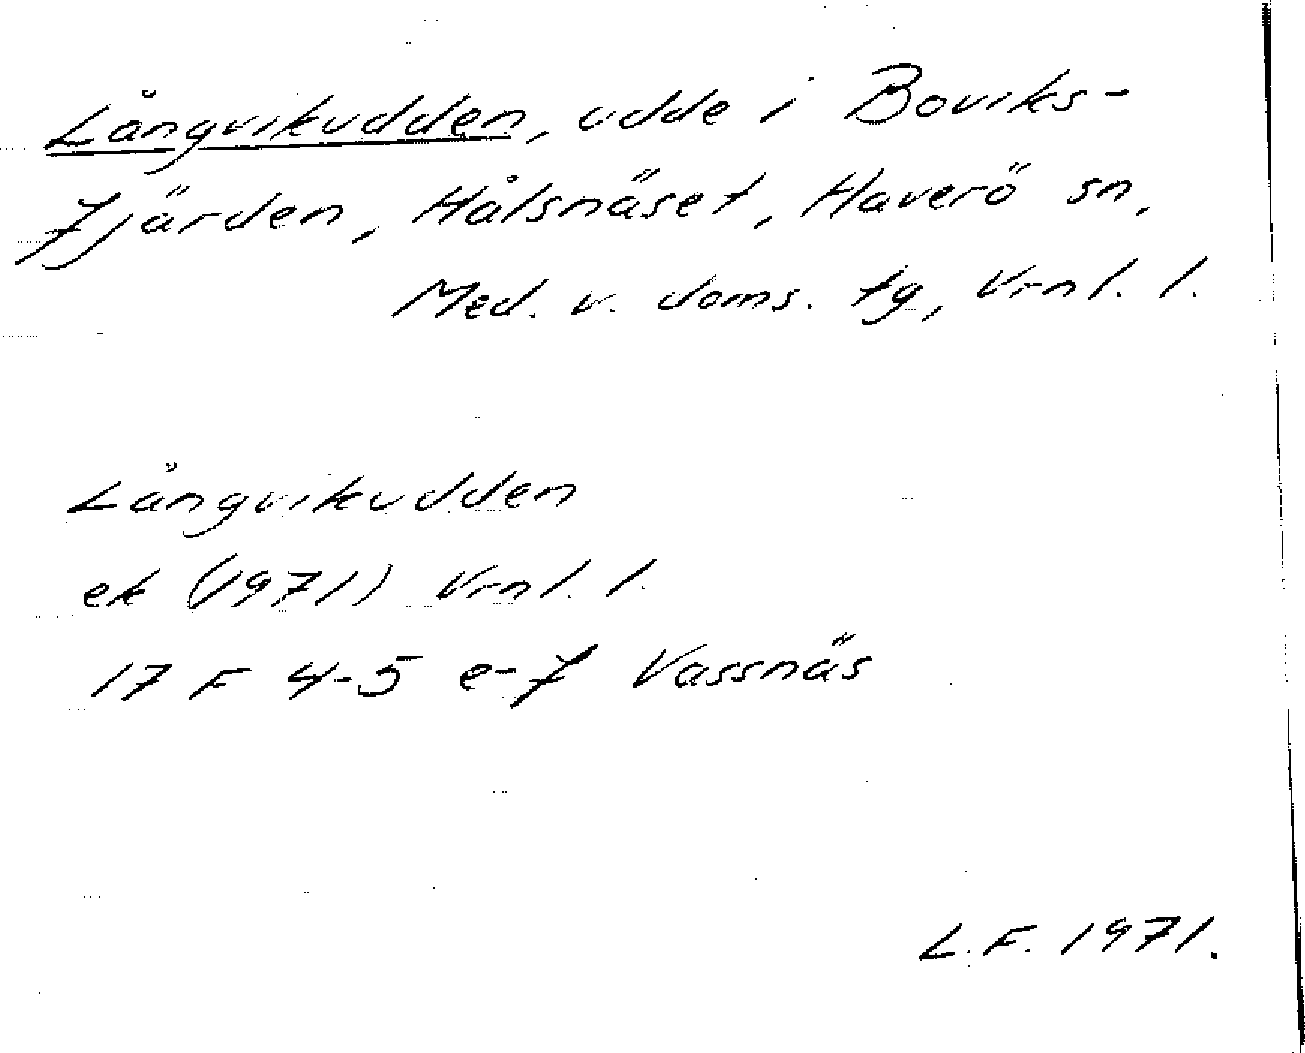 Långvikudden, udde i Boviks-
fjärden, Hålsnäset, Haverö sn,
Med. v. doms. tg, Vrnl. l.
Långvikudden
ek (1971) Vrnl. l.
17 F 4-5 e-f Vassnäs
L.F. 1971.